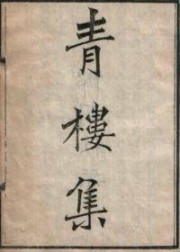 青樓集